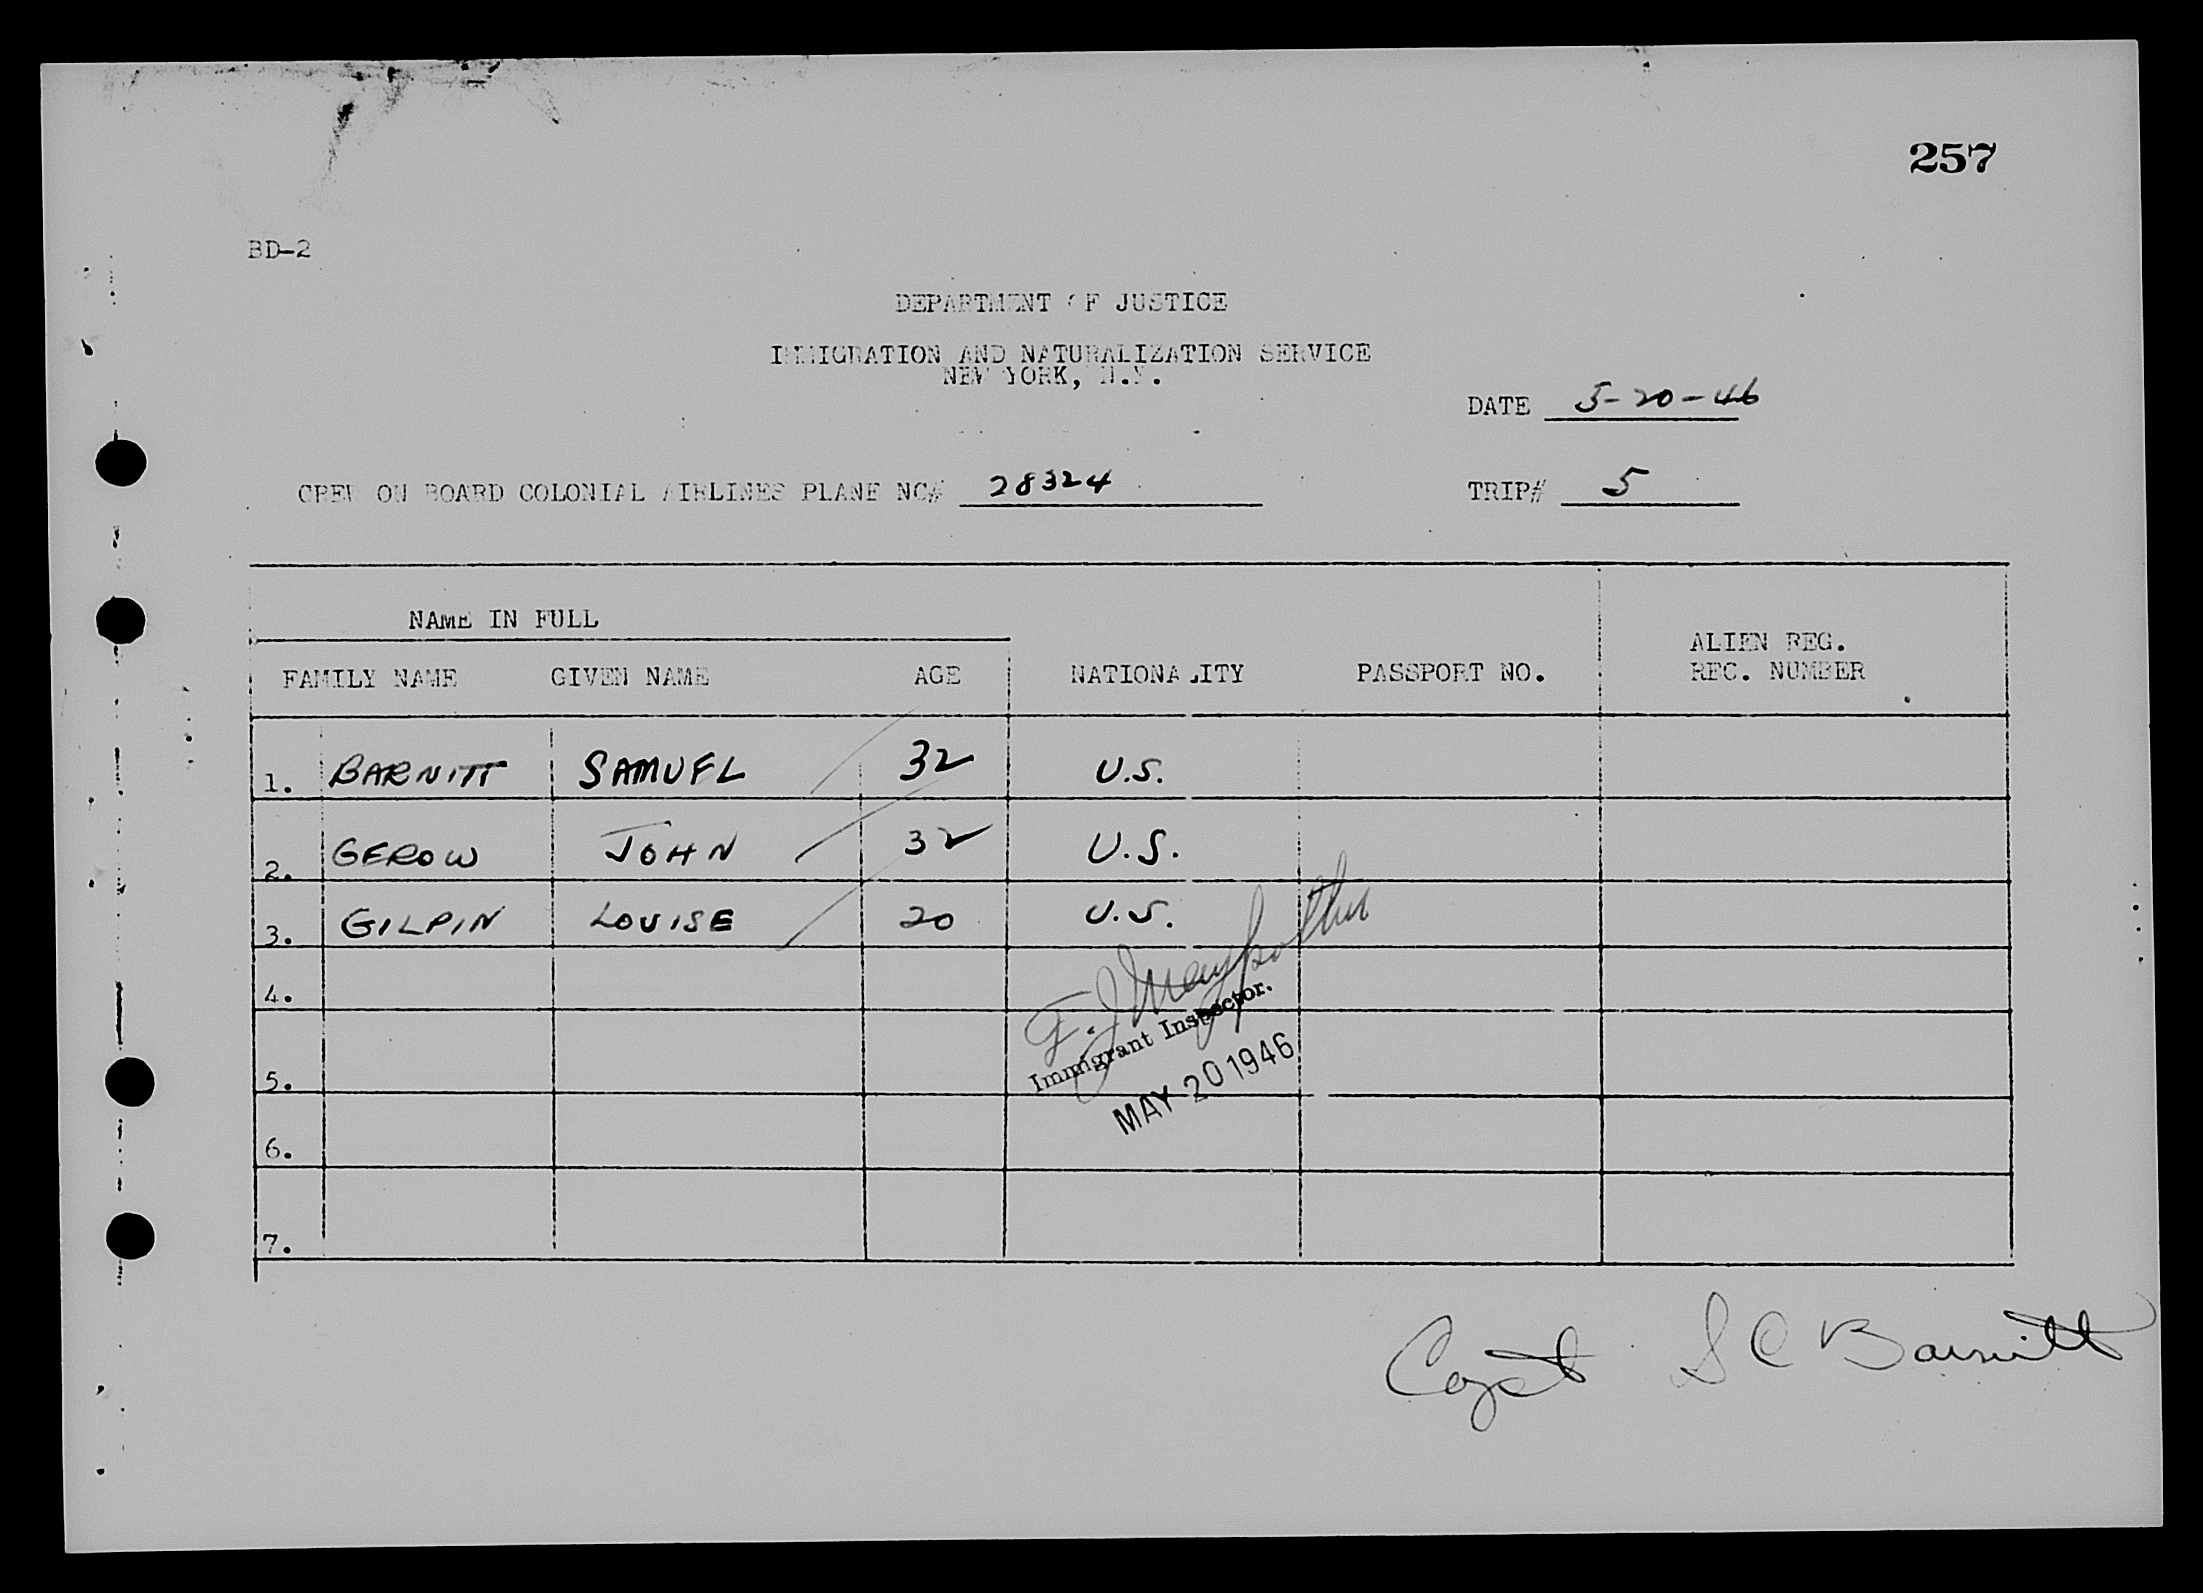 257
BD-2
DEPARTMENT OF JUSTICE
IMMIGRATION AND NATURALIZATION SERVICE
NEW YORK, N.Y.
DATE 5-20-46
CREW ON BOARD COLONIAL AIRLINES PLANE NC# 28324 TRIP# 5
NAME IN FULL
ALIEN REG.
FAMILY NAME GIVEN NAME AGE NATIONALITY PASSPORT NO. REC. NUMBER
1. BARNITT SAMUEL 32 U.S.
2. GEROW JOHN 32 U.S.
3. GILPIN LOUISE 20 U.S.
4.
F. J.
Immigrant Inspector.
5.
MAY 20 1946
6.
7.
Capt S C Barnitt